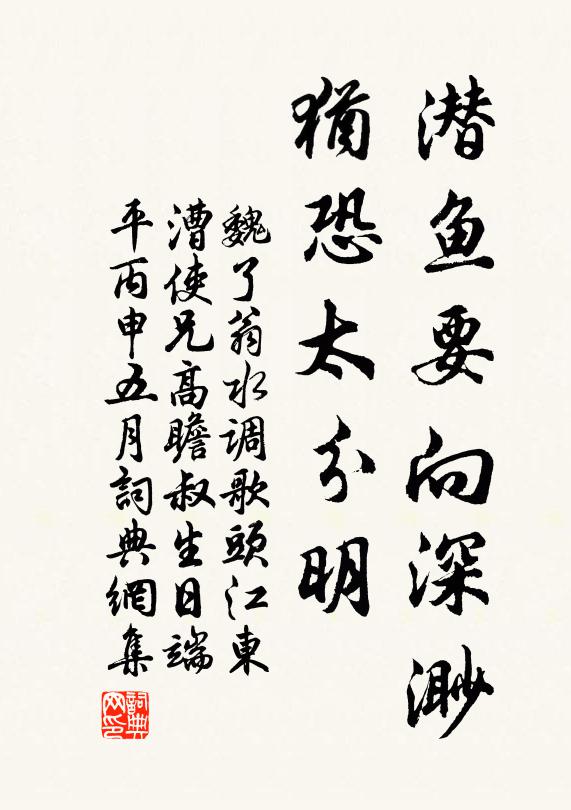 潜鱼要向深渺
犹恐太分明
魏了翁水调歌頭江東
漕使兄高瞻叔生日端
平丙申五月詞典網集
詞典网印